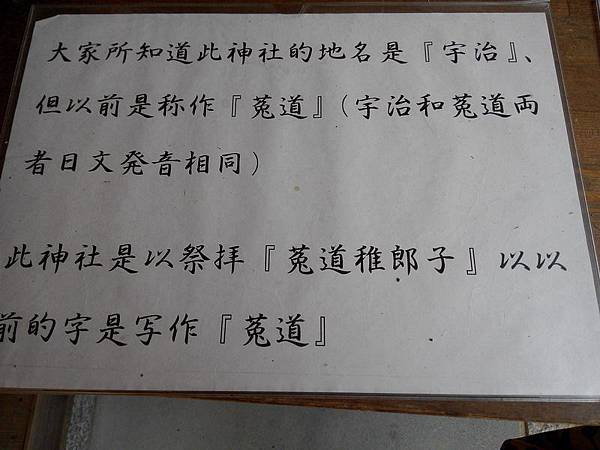 大家所知道此神社的地名是『宇治』、
但以前是称作『菟道』(宇治和菟道両
者日文発音相同)
此神社是以祭拝『菟道稚郎子』以以
前的字是写作『菟道』